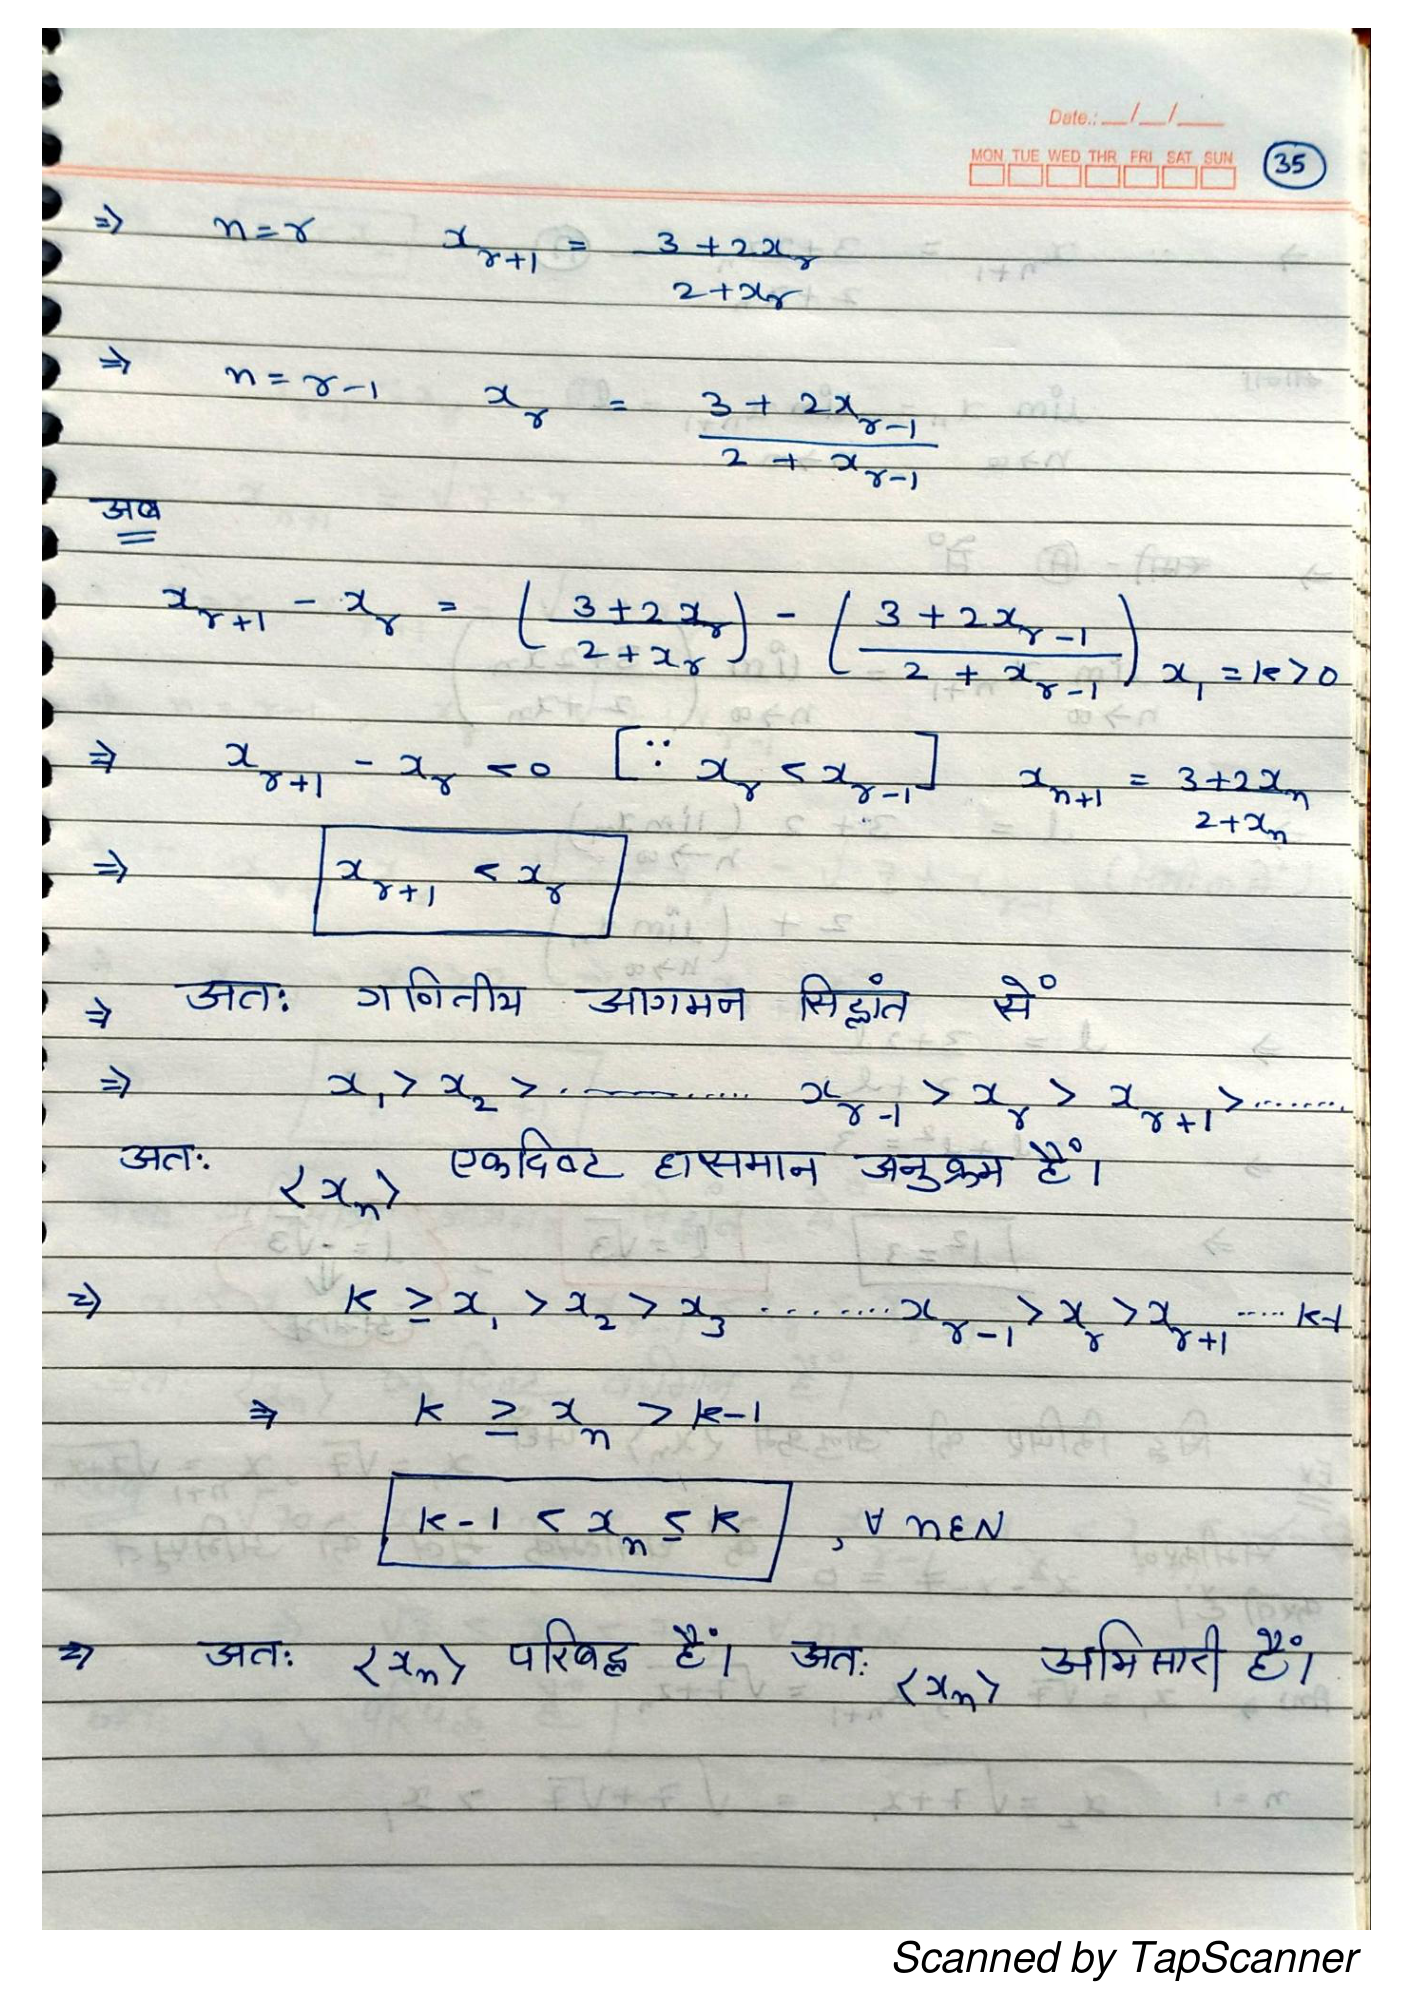 Date.: __/__/___
MON TUE WED THR FRI SAT SUN
35
⇒ n=r x_{r+1} = (3+2x_r)/(2+x_r)
⇒ n=r-1 x_r = (3+2x_{r-1})/(2+x_{r-1})
अब
x_{r+1} - x_r = ((3+2x_r)/(2+x_r)) - ((3+2x_{r-1})/(2+x_{r-1})) x_1 = k>0
⇒ x_{r+1} - x_r < 0 [∵ x_r < x_{r-1}] x_{n+1} = (3+2x_n)/(2+x_n)
⇒ x_{r+1} < x_r
⇒ अतः गणितीय आगमन सिद्धांत सें
⇒ x_1 > x_2 > ............ x_{r-1} > x_r > x_{r+1} > .......
अतः <x_n> एकदिष्ट ह्यसमान अनुक्रम हैं।
⇒ k ≥ x_1 > x_2 > x_3 ........ x_{r-1} > x_r > x_{r+1} ..... k-1
⇒ k ≥ x_n > k-1
k-1 < x_n ≤ k , ∀ n∈N
⇒ अतः <x_n> परिबद्ध हैं। अतः <x_n> अभिसारी हैं।
Scanned by TapScanner